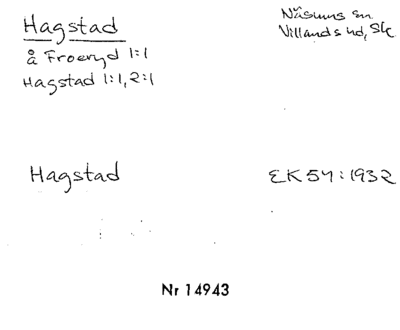 Hagstad
Näsums sn
Villands hd, Sk.
å Froeryd 1:1
Hagstad 1:1, 2:1
Hagstad
EK 54:1932
Nr 14943